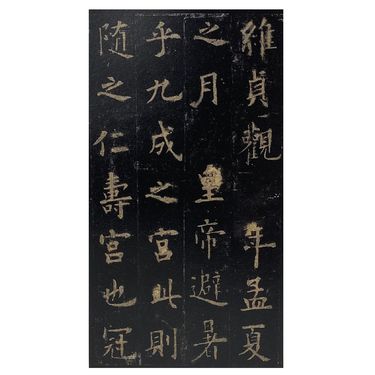 維貞觀 年孟夏
之月 皇帝避暑
乎九成之宮此則
隨之仁壽宮也冠